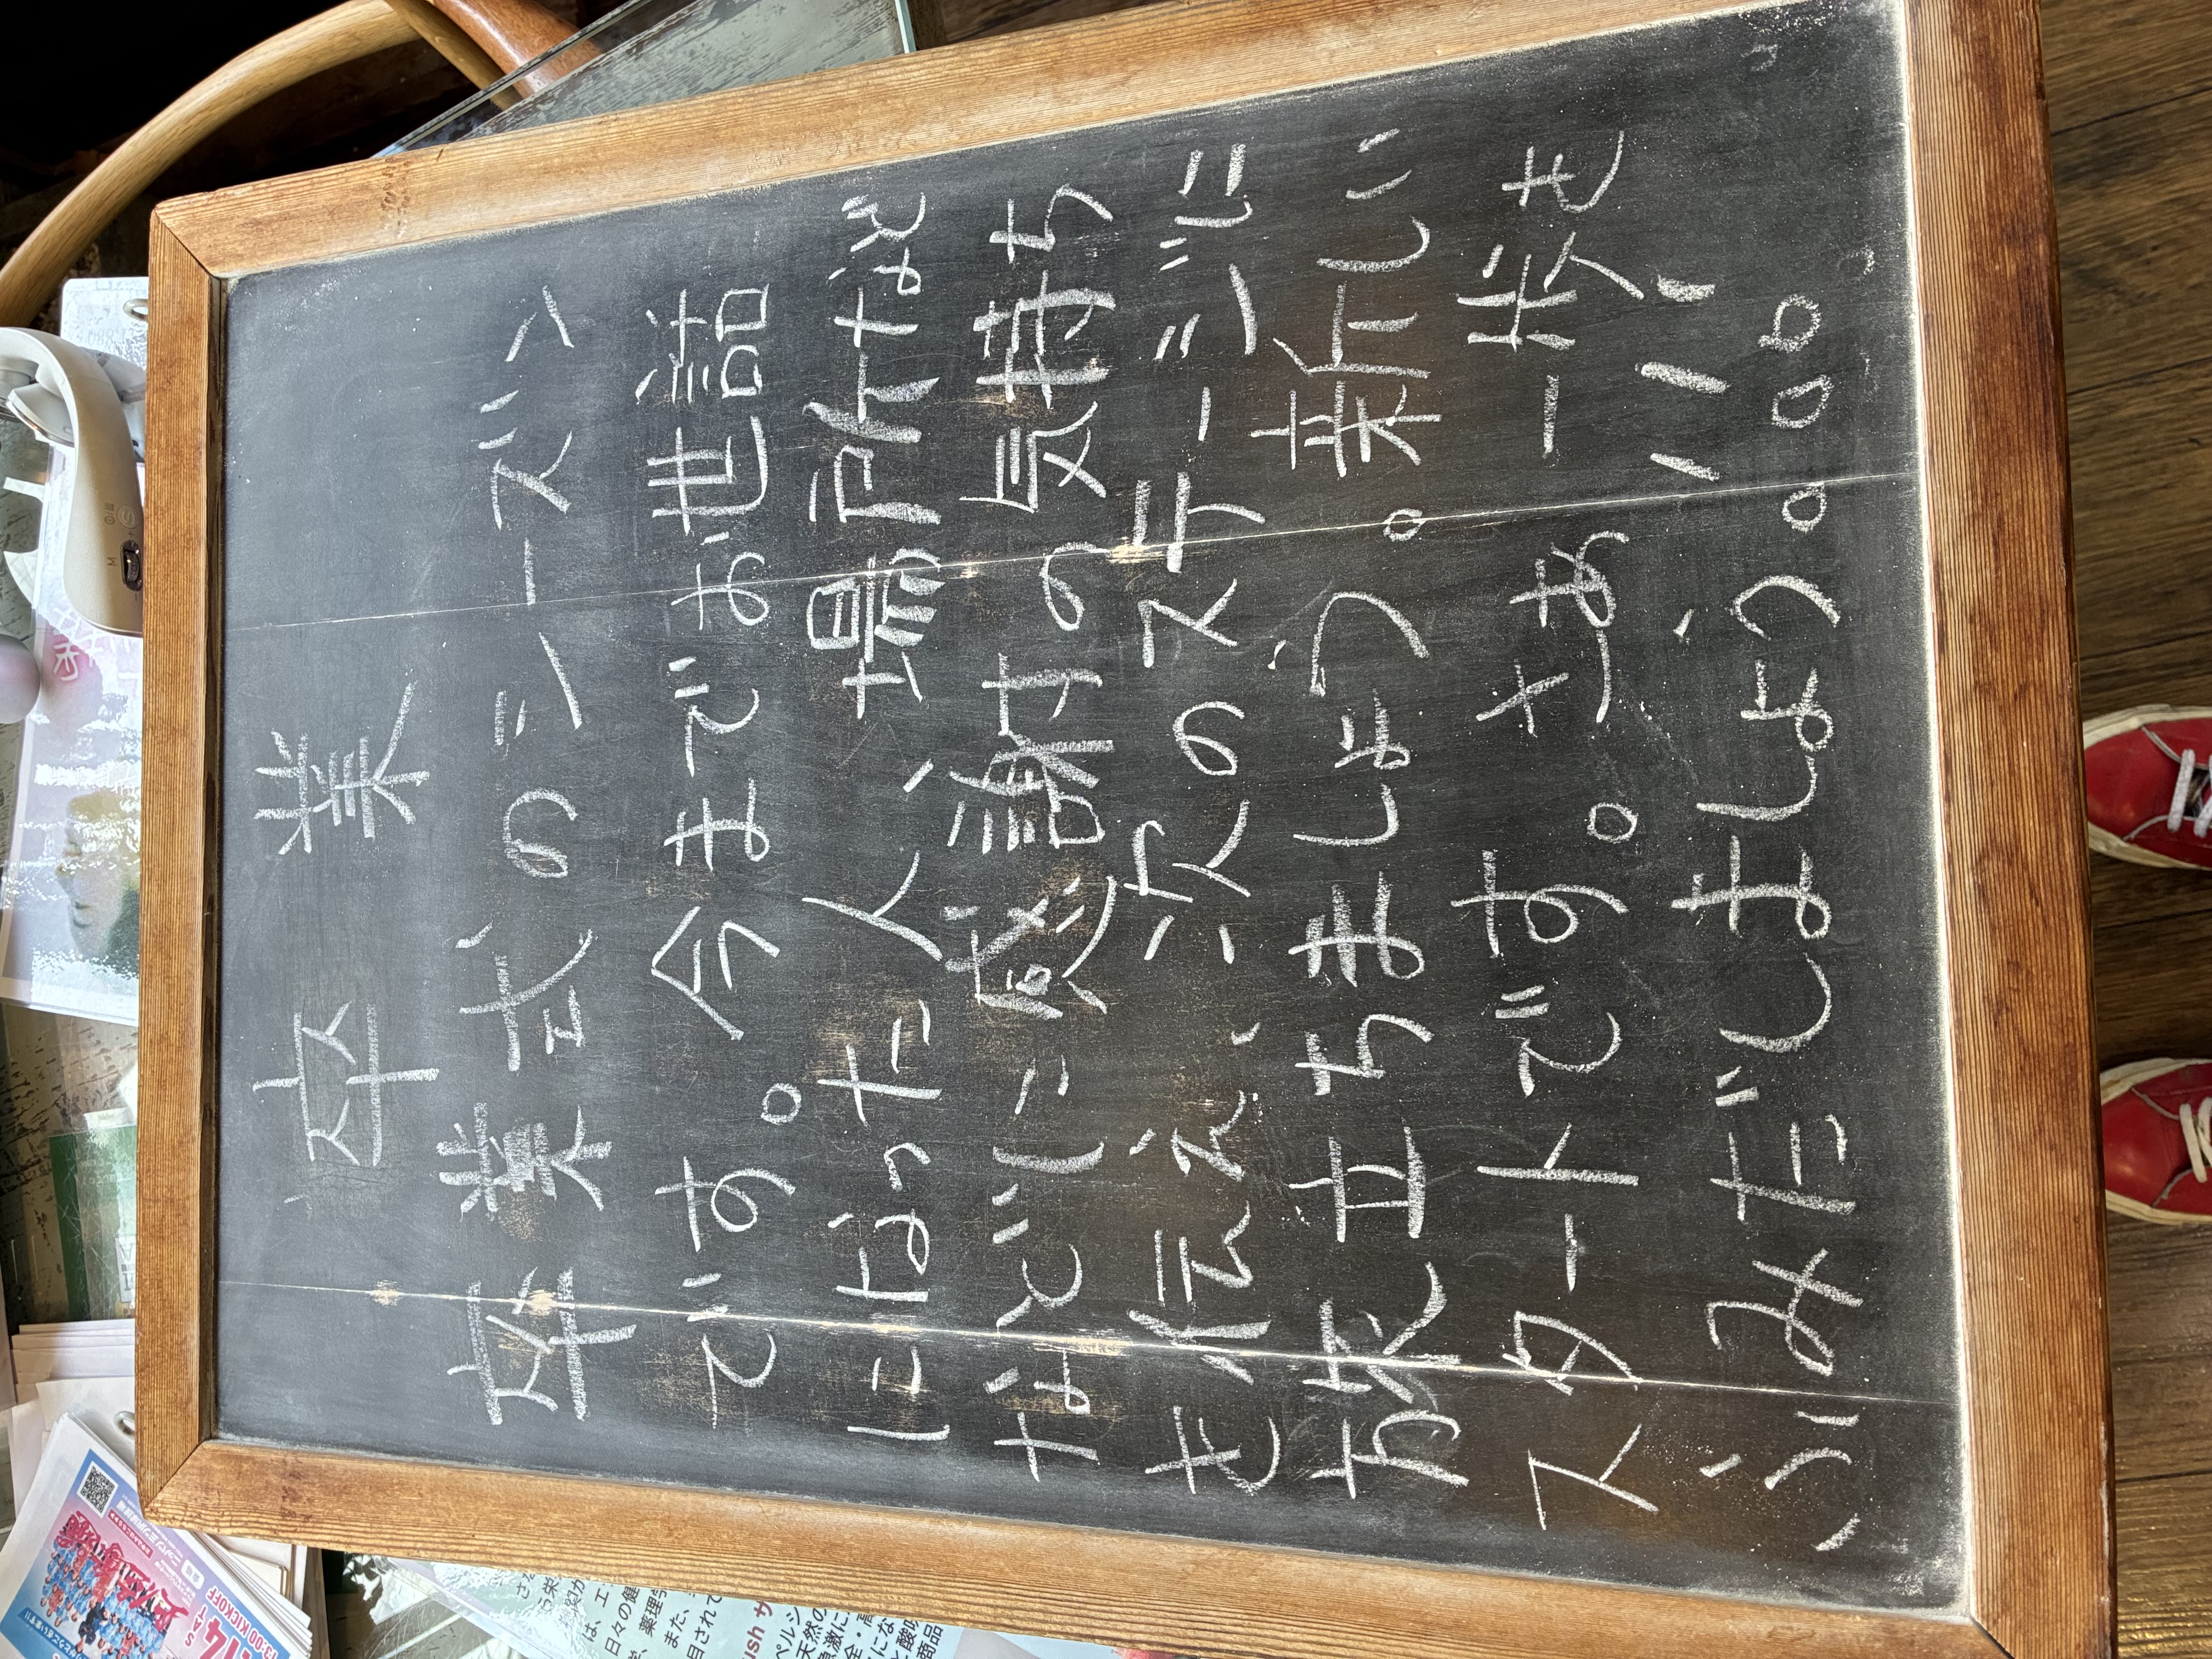 卒業
卒業式のシーズン
です。今までお世話
になった人、場所など
などに感謝の気持ち
を伝え、次のステージに
旅立ちましょう。新しい
スタートです。さぁ一歩を
ふみだしましょう。。。。
14
13:00 KICKOFF
ush サ